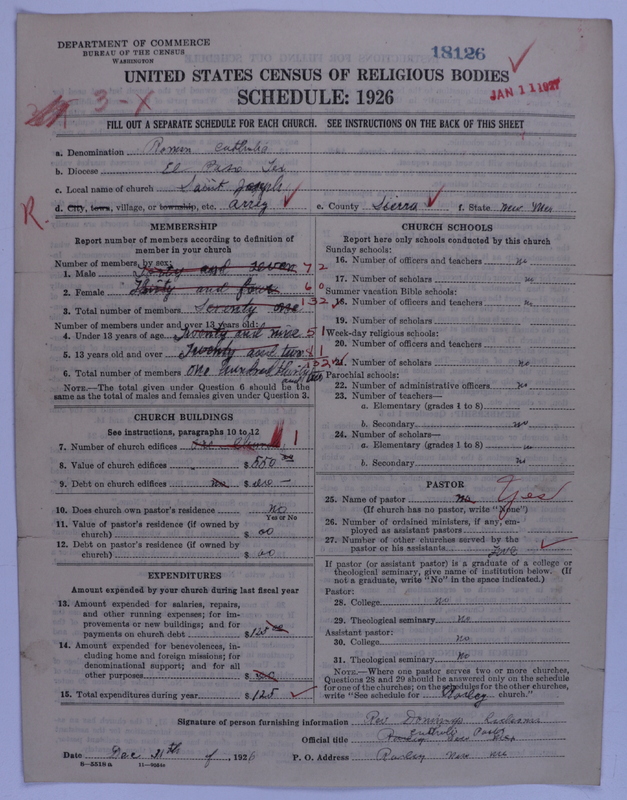 DEPARTMENT OF COMMERCE
BUREAU OF THE CENSUS
WASHINGTON
18126
UNITED STATES CENSUS OF RELIGIOUS BODIES
JAN 11 1927
3-X
SCHEDULE: 1926
FILL OUT A SEPARATE SCHEDULE FOR EACH CHURCH. SEE INSTRUCTIONS ON THE BACK OF THIS SHEET
a. Denomination Roman
b. Diocese El Paso Tex
c. Local name of church Saint Joseph
R.
d. City, town, village, or township, etc. Arrey e. County Sierra f. State New Mex
MEMBERSHIP
Report number of members according to definition of
member in your church
Number of members, by sex:
1. Male Forty and seven 72
2. Female Thirty and four 60
3. Total number of members Seventy one 132
Number of members under and over 13 years old:
4. Under 13 years of age Twenty and nine 51
5. 13 years old and over Twenty and two 81
6. Total number of members One hundred thirty and two 132
NOTE.—The total given under Question 6 should be the
same as the total of males and females given under Question 3.
CHURCH BUILDINGS
See instructions, paragraphs 10 to 12
7. Number of church edifices 1
8. Value of church edifices $550 00
9. Debt on church edifices No $
10. Does church own pastor's residence No
Yes or No
11. Value of pastor's residence (if owned by
church) $ 00
12. Debt on pastor's residence (if owned by
church) $ 00
EXPENDITURES
Amount expended by your church during last fiscal year
13. Amount expended for salaries, repairs,
and other running expenses; for im-
provements or new buildings; and for
payments on church debt $125
14. Amount expended for benevolences, in-
cluding home and foreign missions; for
denominational support; and for all
other purposes $
15. Total expenditures during year $125
CHURCH SCHOOLS
Report here only schools conducted by this church
Sunday schools:
16. Number of officers and teachers No
17. Number of scholars no
Summer vacation Bible schools:
18. Number of officers and teachers No
19. Number of scholars
Week-day religious schools:
20. Number of officers and teachers
21. Number of scholars no
Parochial schools:
22. Number of administrative officers No
23. Number of teachers—
a. Elementary (grades 1 to 8)
b. Secondary no
24. Number of scholars—
a. Elementary (grades 1 to 8) no
b. Secondary No
PASTOR
25. Name of pastor No Yes
(If church has no pastor, write "None")
26. Number of ordained ministers, if any, em-
ployed as assistant pastors
27. Number of other churches served by the
pastor or his assistants
If pastor (or assistant pastor) is a graduate of a college or
theological seminary, give name of institution below. (If
not a graduate, write "No" in the space indicated.)
Pastor:
28. College No
29. Theological seminary No
Assistant pastor:
30. College No
31. Theological seminary No
NOTE.—Where one pastor serves two or more churches,
Questions 28 and 29 should be answered only on the schedule
for one of the churches; on the schedules for the other churches,
write "See schedule for church."
Signature of person furnishing information Rev
Official title
Date Dec 21th of, 1926 P. O. Address New Mex
8-5518a 11-9254a